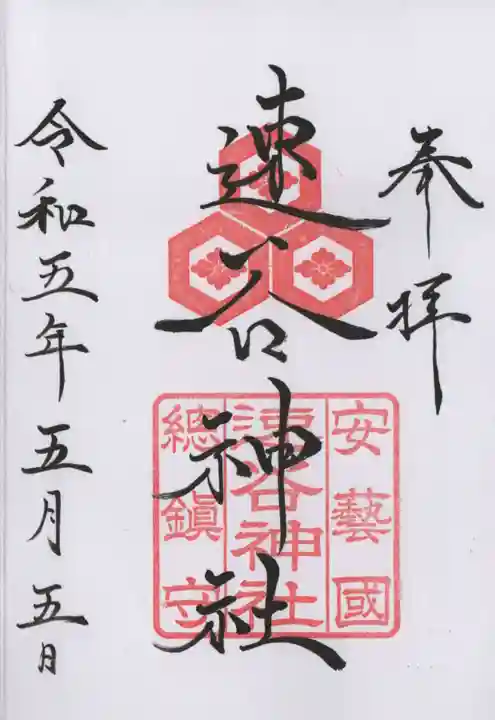 奉拝
速谷神社
安藝國
速谷神社
総鎮守
令和五年五月五日